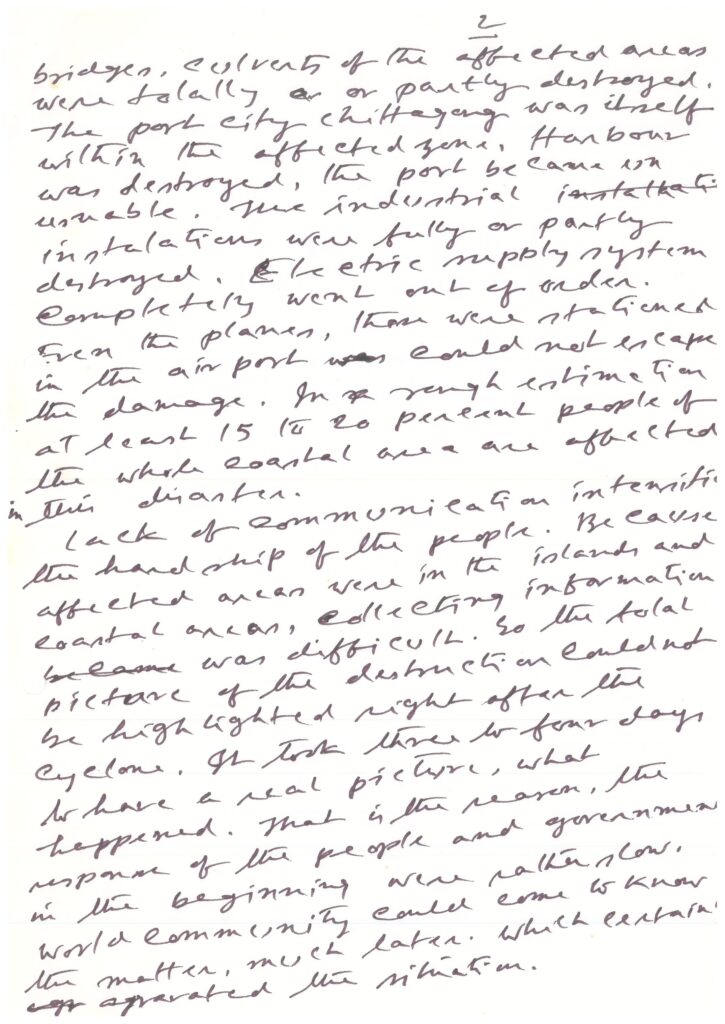 2
bridges, culverts of the affected areas
were totally or or partly destroyed.
The port city chittagong was itself
within the affected zone. Harbour
was destroyed, the port became un
usuable. The industrial installati
instalations were fully or partly
destroyed. Electric supply system
completely went out of order.
Even the planes, those were stationed
in the airport was could not escape
the damage. In a rough estimation
at least 15 to 20 percent people of
the whole coastal area are affected
in this disaster.
Lack of communication intensifi
the hardship of the people. Because
affected areas were in the islands and
coastal areas, collecting information
became was difficult. So the total
picture of the destruction could not
be highlighted right after the
cyclone. It took three to four days
to have a real picture, what
happened. That is the reason, the
response of the people and governmen
in the beginning were rather slow.
world community could come to know
the matter, much later. which certain
agravated the situation.